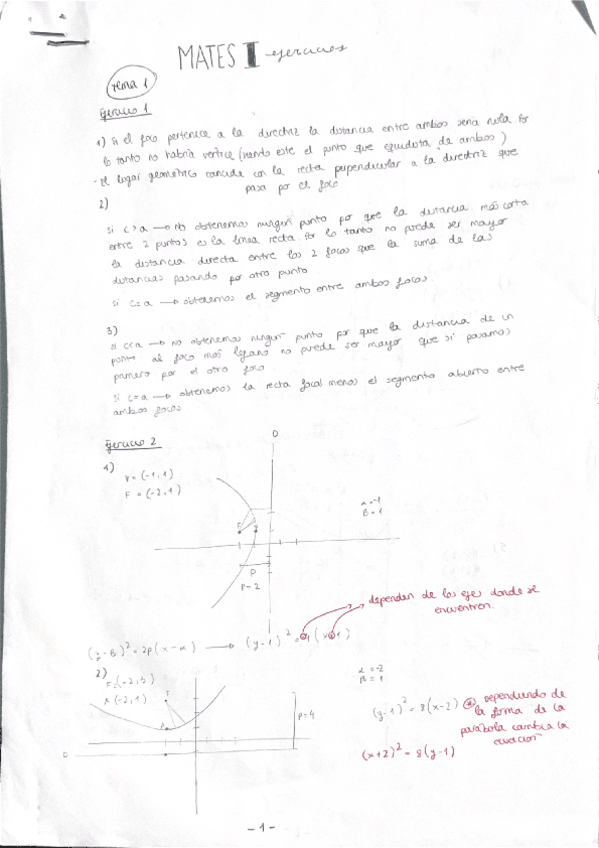 MATES I ejercicios
tema 1
Ejercicio 1
1) Si el foco pertenece a la directriz la distancia entre ambos seria nula. Por
lo tanto no habria vertice (siendo este el punto que equidista de ambos)
- El lugar geometrico coincide con la recta perpendicular a la directriz que
pasa por el foco
2)
si c>a → No obtenemos ningun punto por que la distancia más corta
entre 2 puntos es la linea recta. Por lo tanto no puede ser mayor
la distancia directa entre los 2 focos que la suma de las
distancias pasando por otro punto
si c=a → obtenemos el segmento entre ambos focos.
3)
si c<a → no obtenemos ningun punto por que la distancia de un
punto al foco mas lejano no puede ser mayor que si pasamos
primero por el otro foco
si c=a → obtenemos la recta focal menos el segmento abierto entre
ambos focos
Ejercicio 2
D
1)
V = (-1,1)
F = (-2,1)
α=-1
β=1
F
V
P
P=2
dependen de los ejes donde se
encuentren.
(y-β)² = 2p(x-α) → (y-1)² = 4(x+1)
2)
F=(-2,3)
V(-2,1)
F
D
P=4
α=-2
β=1
(y-1)² = 8(x-2)
Dependiendo de
la forma de la
parábola cambia la
ecuacion
(x+2)² = 8(y-1)
-1-